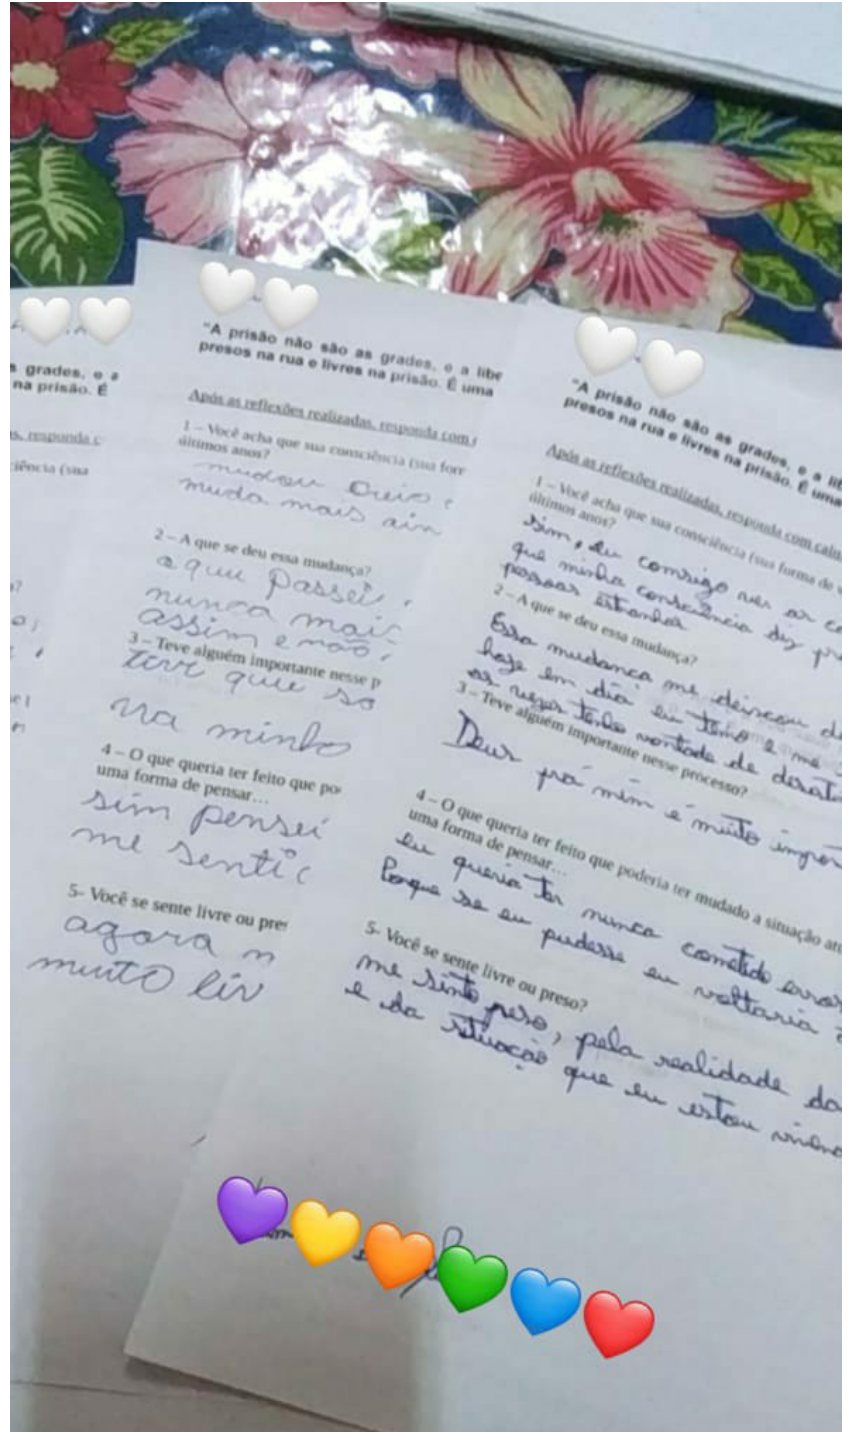 s grades, o a
na prisão. É
s, responda c
iência (sua
"A prisão não são as grades, e a libe
presos na rua e livres na prisão. É uma
Após as reflexões realizadas, responda com
1 – Você acha que sua consciência (sua for
últimos anos?
mudou
muda mais ain
2 – A que se deu essa mudança?
a quu passei,
nunca mais
assim e não,
3 – Teve alguém importante nesse p
tive que so
na minha
4 – O que queria ter feito que po
uma forma de pensar…
sim pensei
me senti
5- Você se sente livre ou pre
agora n
muito liv
"A prisão não são as grades, e a lib
presos na rua e livres na prisão. É uma
Após as reflexões realizadas, responda com calm
1 – Você acha que sua consciência (sua forma de
últimos anos?
sim, eu comsigo ver as co
que minha consciência diz pr
pessoas estranhas
2 – A que se deu essa mudança?
Essa mudanca me deixou d
hoje em dia eu temo e me
as vezes tenho vontade de desat
3 – Teve alguém importante nesse processo?
Deus prá mim é muito impor
4 – O que queria ter feito que poderia ter mudado a situação atu
uma forma de pensar…
eu queria ter nunca cometido erros
Porque se eu pudesse eu voltaria
5- Você se sente livre ou preso?
me sinto preso, pela realidade da
e da situacão que eu estou